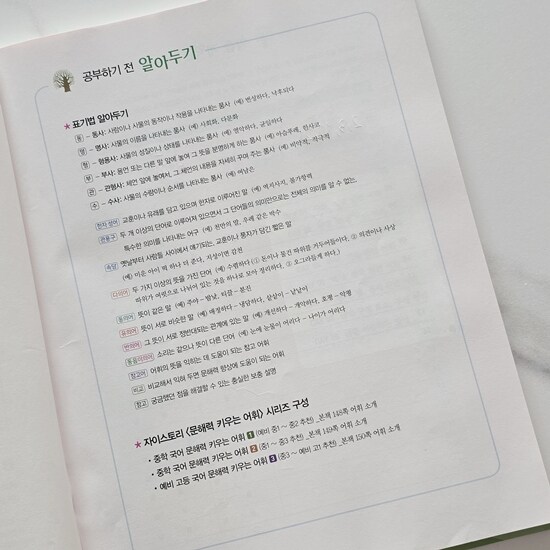 공부하기 전 알아두기
★ 표기법 알아두기
동 – 동사: 사람이나 사물의 동작이나 작용을 나타내는 품사 (예) 번성하다, 낙후되다
명 – 명사: 사물의 이름을 나타내는 품사 (예) 사회화, 다문화
형 – 형용사: 사물의 성질이나 상태를 나타내는 품사 (예) 영악하다, 균일하다
부 – 부사: 용언 또는 다른 말 앞에 놓여 그 뜻을 분명하게 하는 품사 (예) 아슴푸레, 한사코
관 – 관형사: 체언 앞에 놓여서, 그 체언의 내용을 자세히 꾸며 주는 품사 (예) 비약적, 극적
수 – 수사: 사물의 수량이나 순서를 나타내는 품사 (예) 예닐곱
한자 성어 교훈이나 유래를 담고 있으며 한자로 이루어진 말 (예) 백지사지, 불가항력
관용구 두 개 이상의 단어로 이루어져 있으면서 그 단어들의 의미만으로는 전체의 의미를 알 수 없는,
특수한 의미를 나타내는 어구 (예) 천만의 말, 우레 같은 박수
속담 옛날부터 사람들 사이에서 얘기되는, 교훈이나 풍자가 담긴 짧은 말
(예) 미운 아이 떡 하나 더 준다, 지성이면 감천
다의어 두 가지 이상의 뜻을 가진 단어 (예) 수렴하다 (① 돈이나 물건 따위를 거두어들이다. ② 의견이나 사상
따위가 여럿으로 나뉘어 있는 것을 하나로 모아 정리하다. ③ 오그라들게 하다.)
동의어 뜻이 같은 말 (예) 주야 – 밤낮, 티끌 – 분진
유의어 뜻이 서로 비슷한 말 (예) 매정하다 – 냉담하다, 샅샅이 – 낱낱이
반의어 뜻이 서로 정반대되는 관계에 있는 말 (예) 개선하다 – 개악하다, 호평 – 악평
동음이의어 소리는 같으나 뜻이 다른 단어 (예) 눈에 눈물이 어리다 – 나이가 어리다
참고어 어휘의 뜻을 익히는 데 도움이 되는 참고 어휘
비교 비교해서 익혀 두면 문해력 향상에 도움이 되는 어휘
참고 궁금했던 점을 해결할 수 있는 충실한 보충 설명
★ 자이스토리 <문해력 키우는 어휘> 시리즈 구성
• 중학 국어 문해력 키우는 어휘 1 (예비 중1 ~ 중2 추천) _본책 148쪽 어휘 소개
• 중학 국어 문해력 키우는 어휘 2 (중1 ~ 중3 추천) _본책 149쪽 어휘 소개
• 예비 고등 국어 문해력 키우는 어휘 3 (중3 ~ 예비 고1 추천) _본책 150쪽 어휘 소개